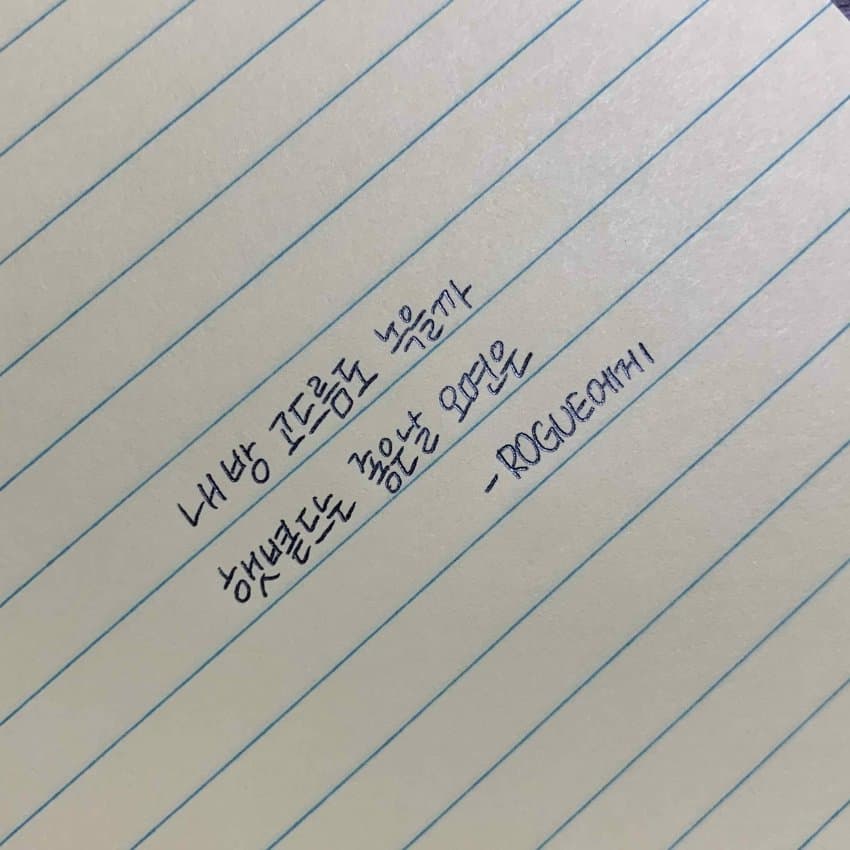 내방 고드름도 녹을까
햇볕드는 좋은날 오면은
- ROGUE에게I